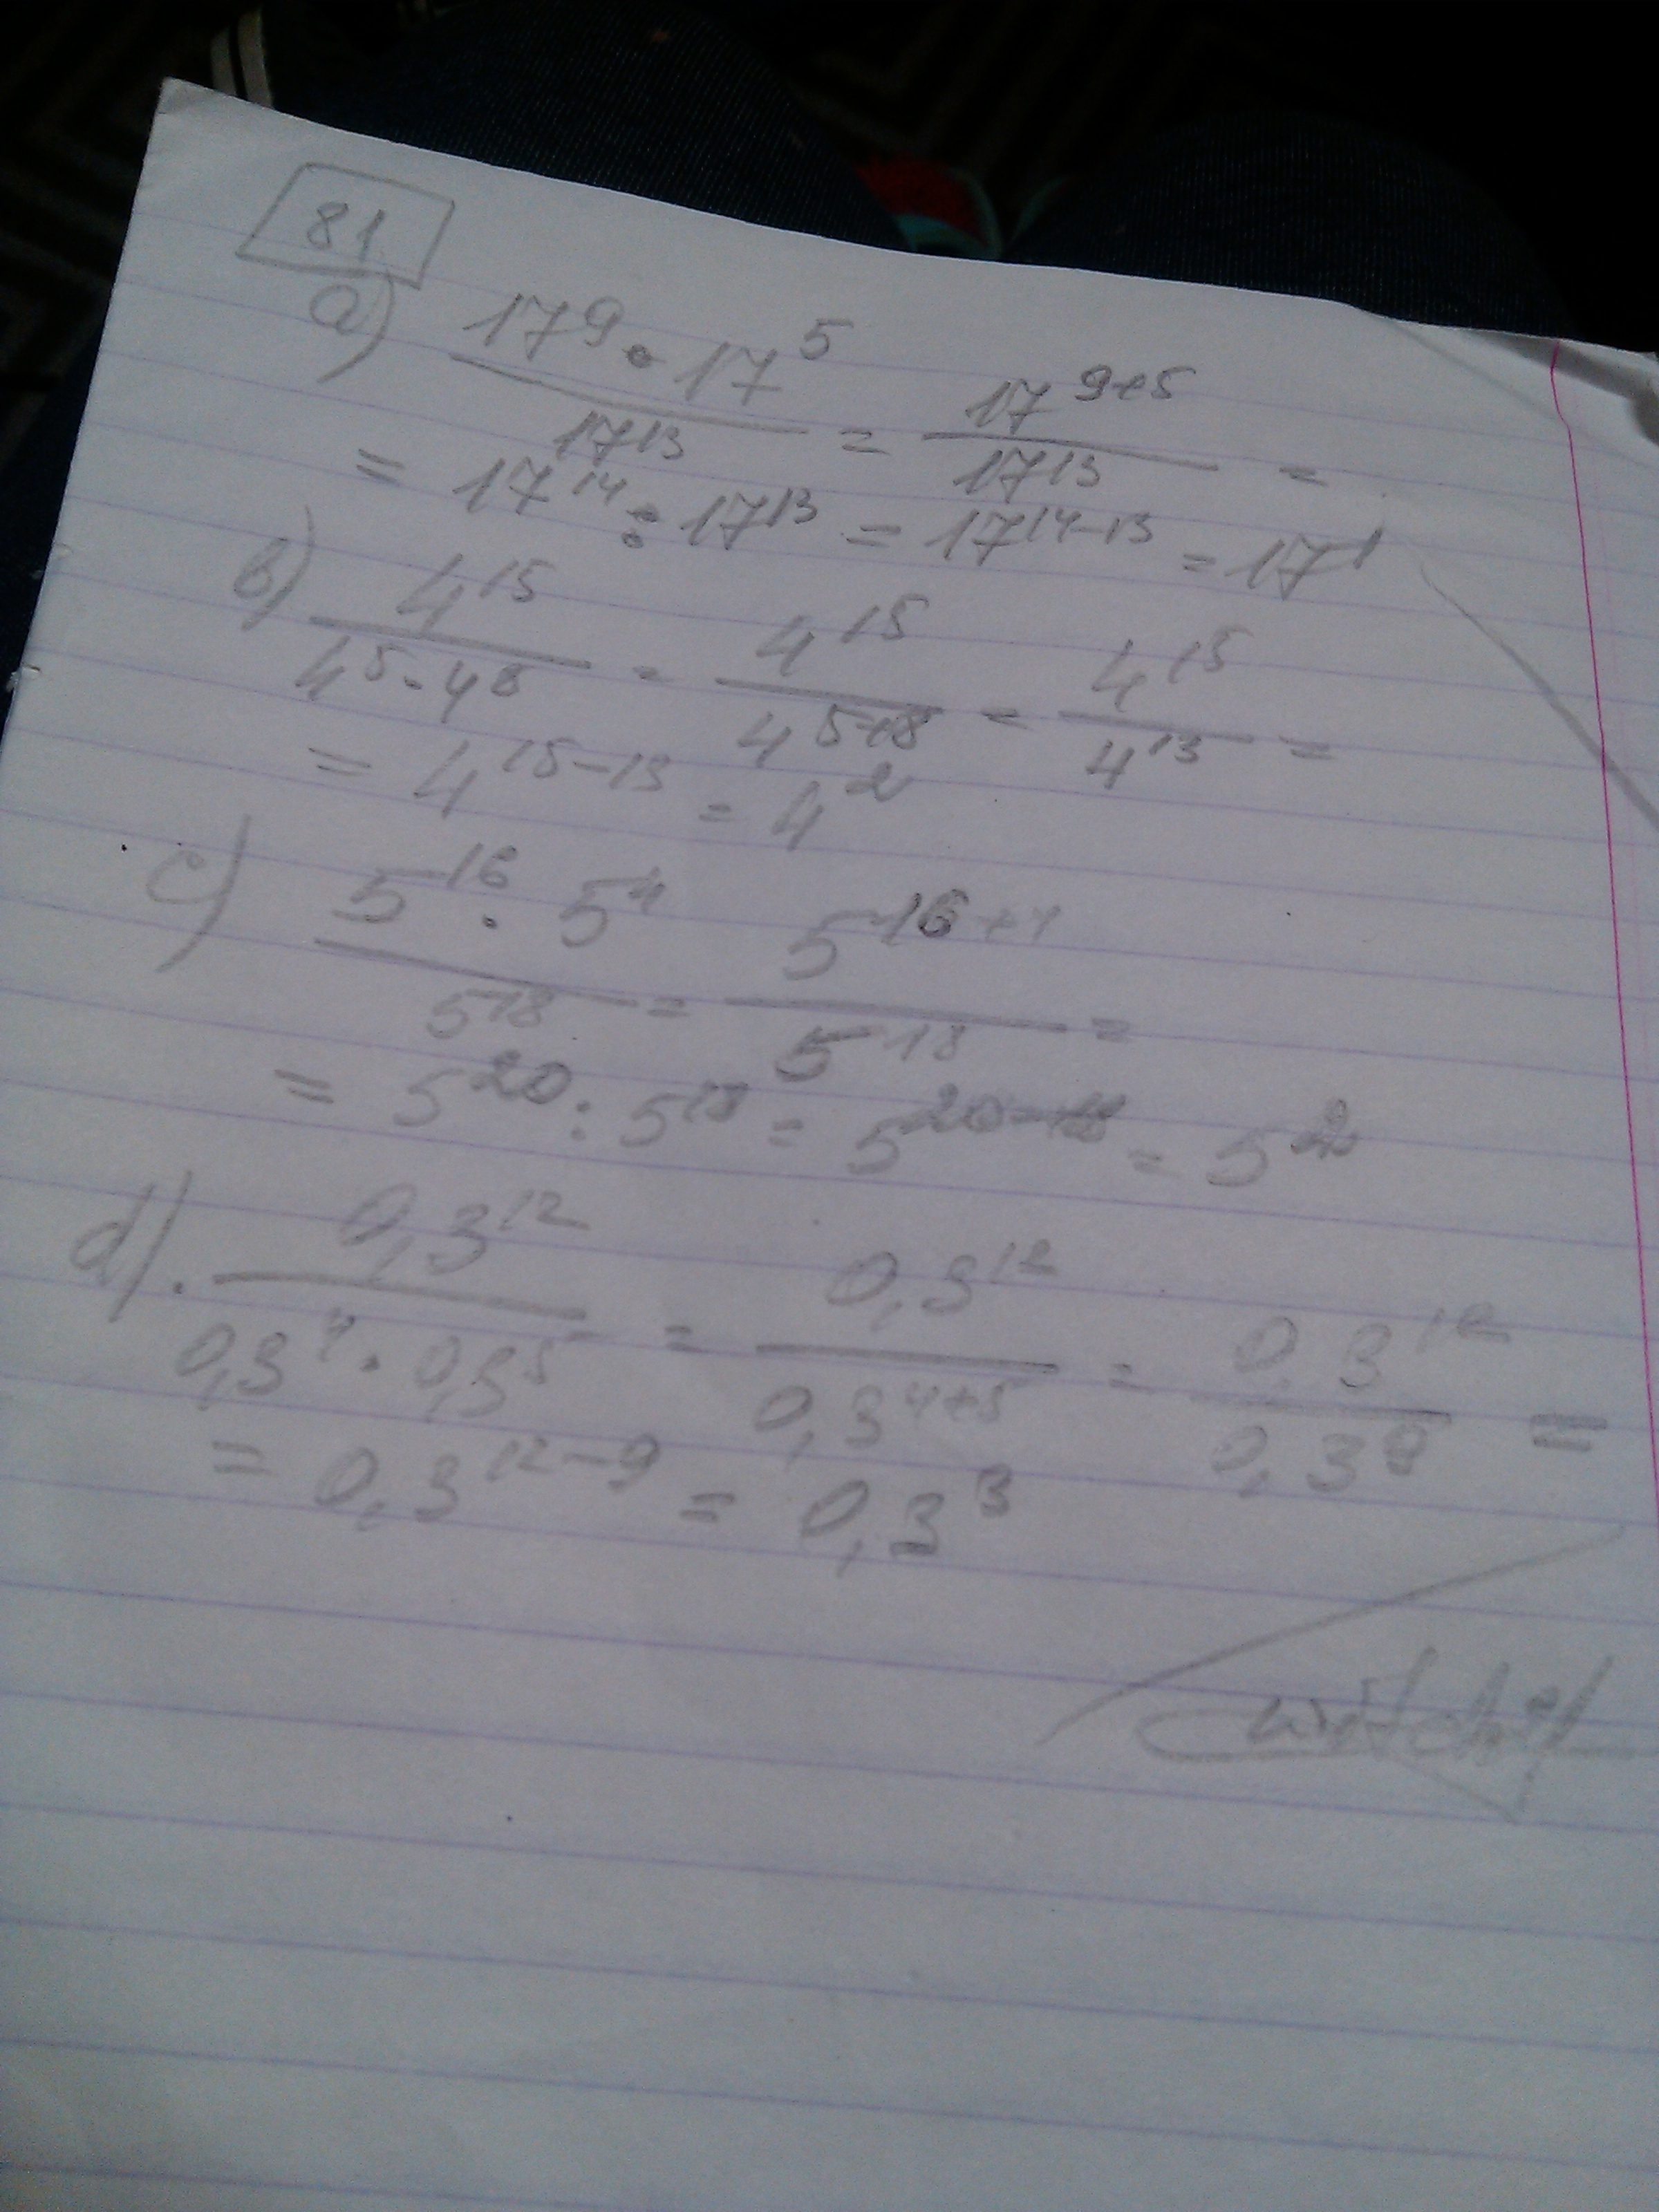 81
a) 17^9 · 17^5 / 17^13 = 17^(9+5) / 17^13 =
= 17^14 : 17^13 = 17^(14-13) = 17^1
b) 4^15 / 4^5 · 4^8 = 4^15 / 4^(5+8) = 4^15 / 4^13 =
= 4^(15-13) = 4^2
c) 5^16 · 5^4 / 5^18 = 5^(16+4) / 5^18 =
= 5^20 : 5^18 = 5^(20-18) = 5^2
d) 0,3^12 / 0,3^4 · 0,3^5 = 0,3^12 / 0,3^(4+5) = 0,3^12 / 0,3^9 =
= 0,3^(12-9) = 0,3^3